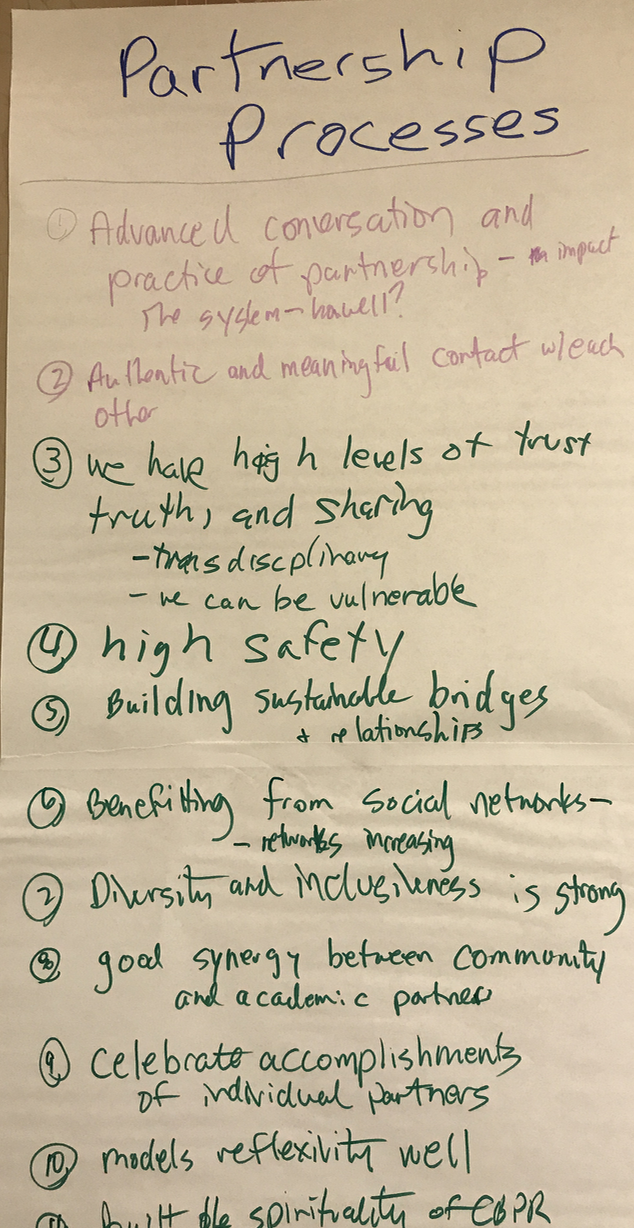 Partnership
Processes
① Advanced conversation and
practice of partnership - impact
The system - how well?
② Authentic and meaningful contact w/each
other
③ we have high levels of trust
truth, and sharing
- transdiscplinary
- we can be vulnerable
④ high safety
⑤ Building sustainable bridges
+ relationships
⑥ Benefitting from social networks -
- networks increasing
⑦ Diversity and inclusiveness is strong
⑧ good synergy between community
and academic partners
⑨ celebrate accomplishments
of individual partners
⑩ models reflexivity well
⑪ built the spirituality of CBPR